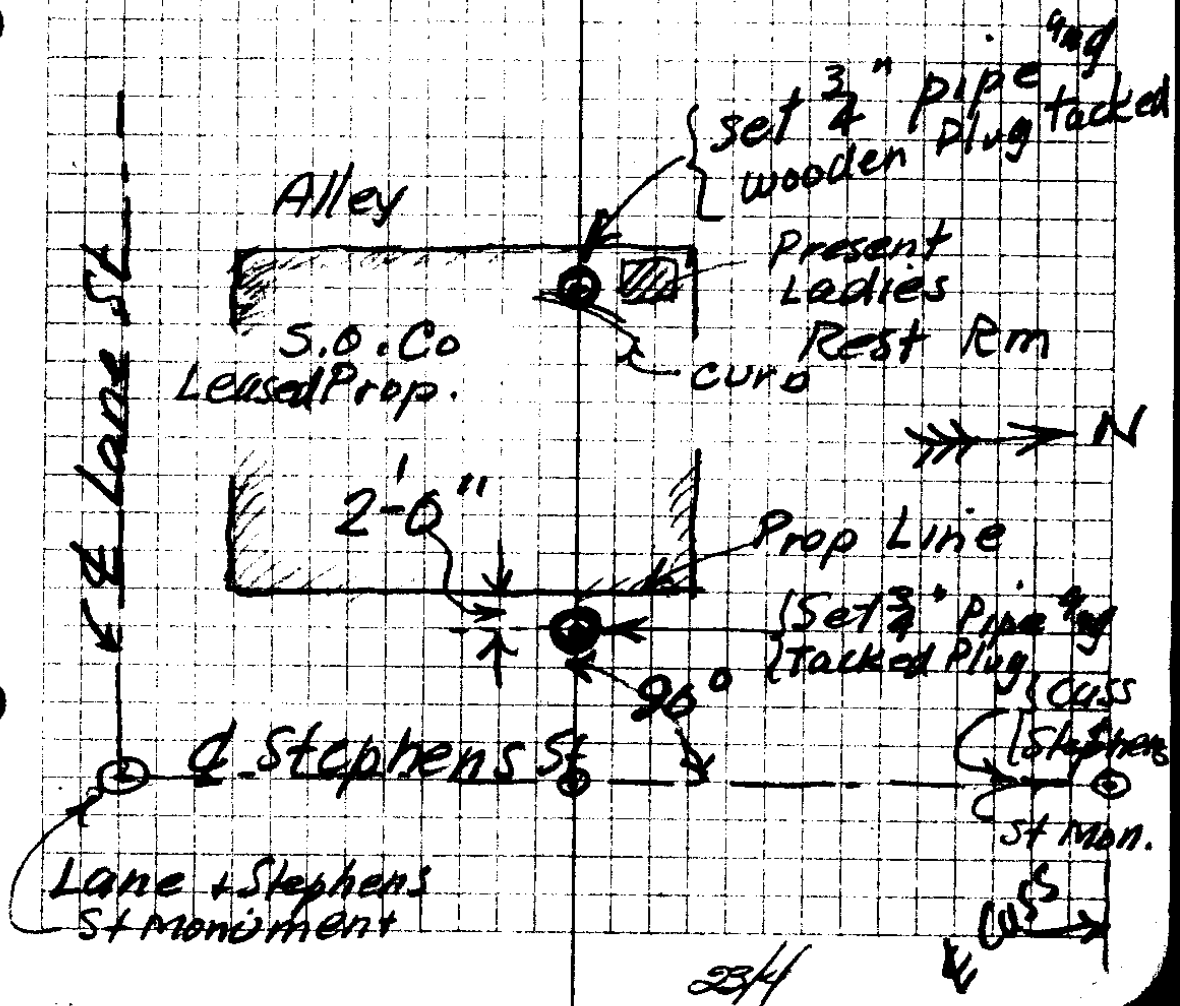 set 3/4" pipe and
wooden Plug tacked
Alley
Present
Ladies
Rest Rm
curb
S.O.Co
Leased Prop.
N
℄ Lane St.
2'-0"
Prop Line
Set 3/4" Pipe and
Tacked Plug
90°
Cass
Stephens
St Mon.
℄ Stephens St
Lane + Stephens
St Monument
℄ Cass
23/4